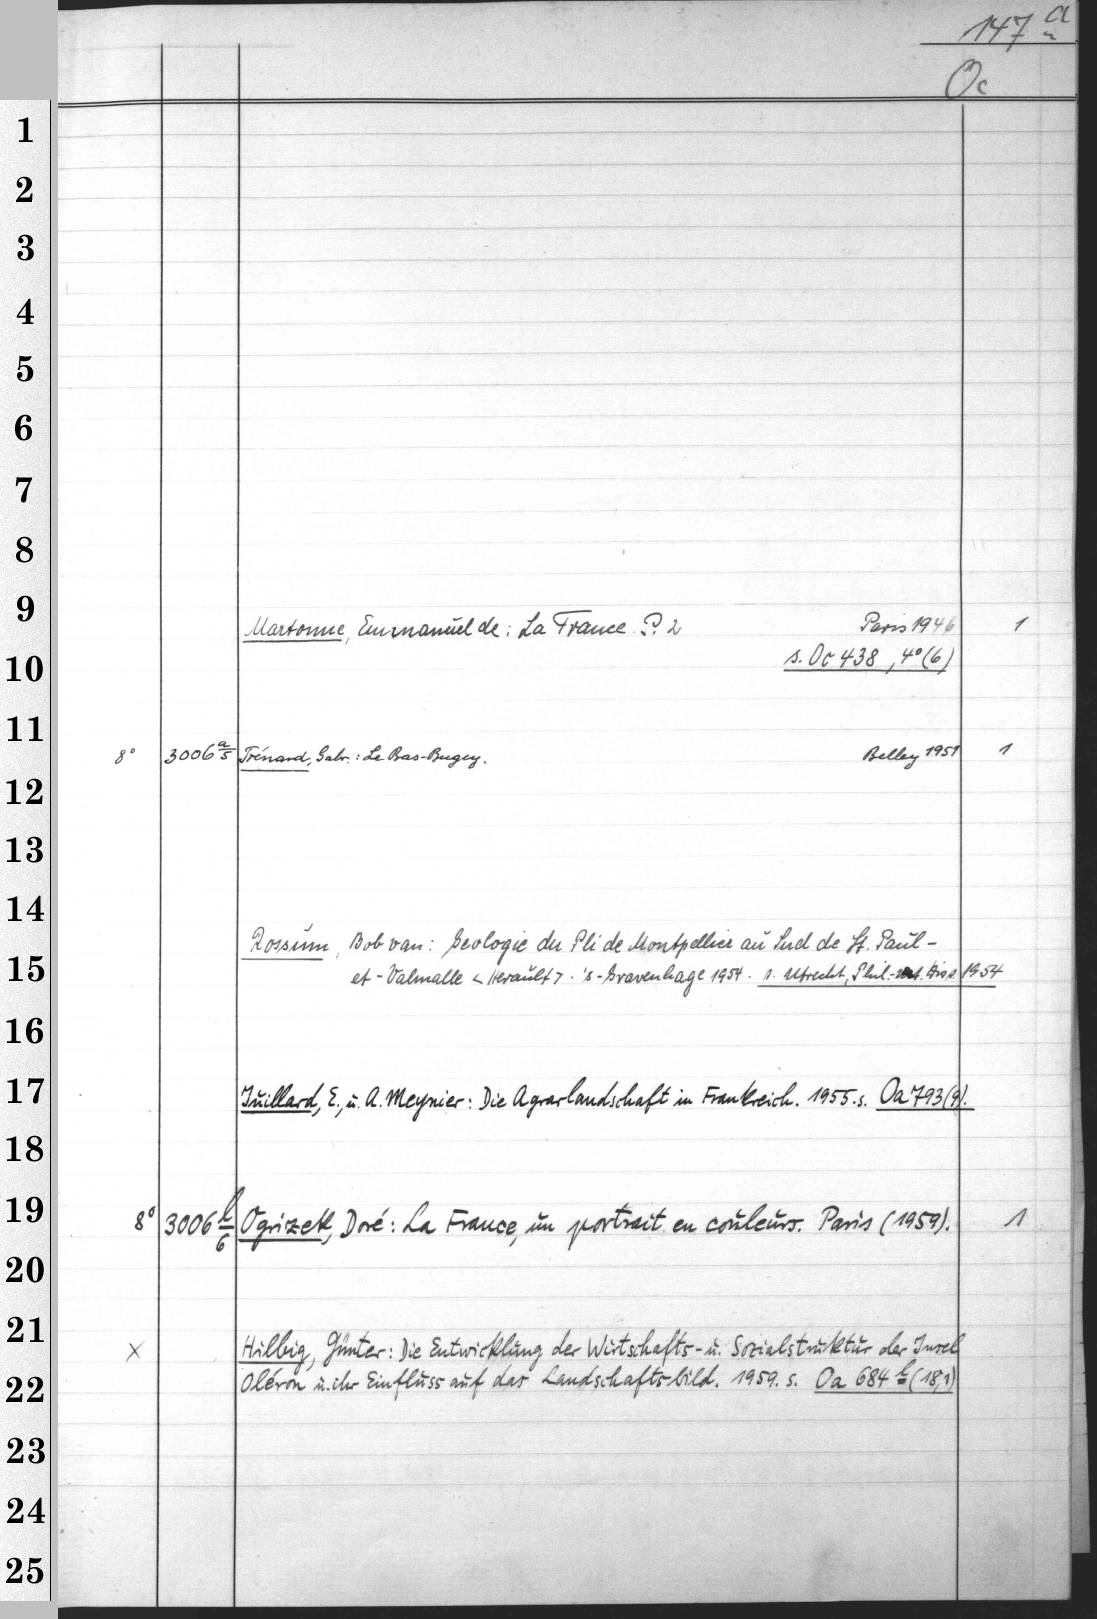 147 a
Oc
1
2
3
4
5
6
7
8
9
Martonne, Emmanuel de: La France. P. 2 Paris 1946 1
10 s. Oc 438, 4° (6)
11
8° 3006 a/5 Trénard, Gabr.: Le Bas-Bugey. Belley 1951 1
12
13
14
Rossum, Bob van: Geologie du Pli de Montpellier au Sud de St. Paul-
15 et-Valmalle <Herault>. 's-Gravenhage 1954. s. Utrecht, Phil. Diss. 1954
16
17 Juillard, E., u. A. Meynier: Die Agrarlandschaft in Frankreich. 1955. s. Oa 793 (9).
18
19 8° 3006 b/6 Ogrizek, Doré: La France, un portrait en couleurs. Paris (1959). 1
20
21
× Hilbig, Günter: Die Entwicklung der Wirtschafts- u. Sozialstruktur der Insel
22 Oléron u. ihr Einfluss auf das Landschaftsbild. 1959. s. Oa 684 b (18,1)
23
24
25